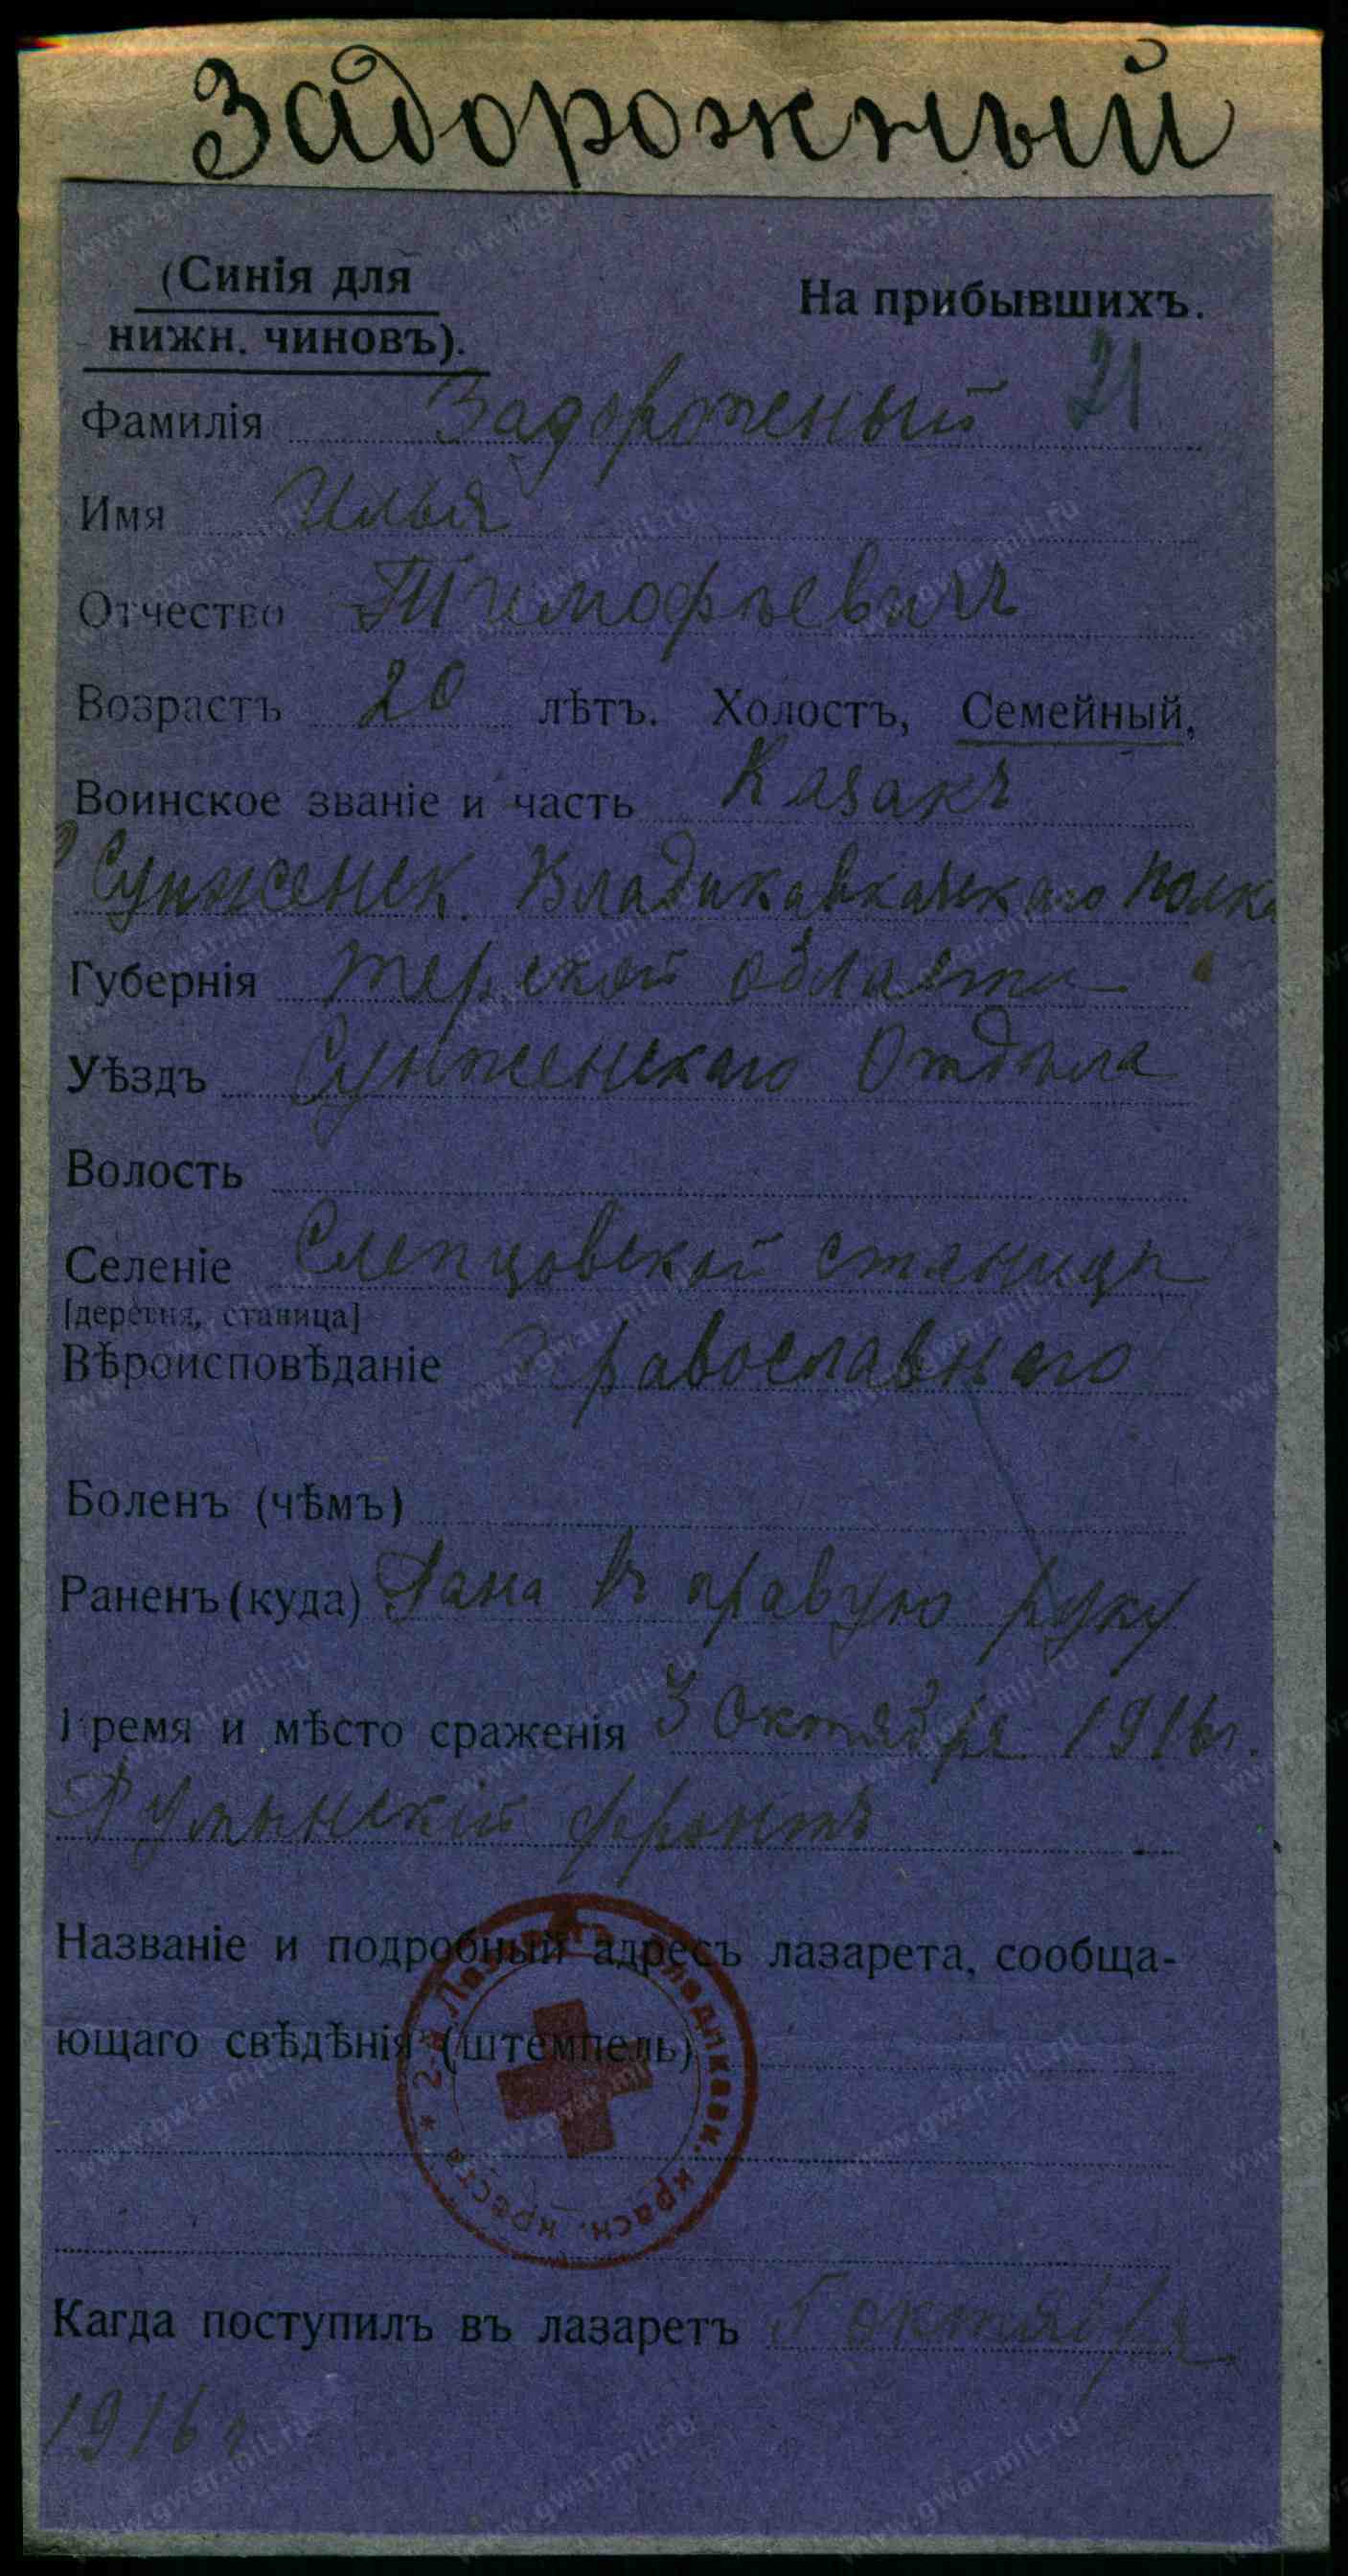 Задорожный
(Синія для
На прибывшихъ.
нижн. чиновъ).
21
Фамилія Задорожный
Имя Илья
Отчество Тимофѣевичъ
Возрастъ 20 лѣтъ. Холостъ, Семейный,
Воинское званіе и часть Казакъ
Сунженск. Владикавказскаго полка
Губернія Терской области
Уѣздъ Сунженскаго Отдѣла
Волость
Селеніе Слепцовской станицѣ
[деревня, станица]
Вѣроисповѣданіе Православнаго
Боленъ (чѣмъ)
Раненъ (куда) Рана въ правую руку
Время и мѣсто сраженія 3 Октября 1916 г.
Румынскій фронтъ
Названіе и подробный адресъ лазарета, сообща-
ющаго свѣдѣнія (штемпель)
* 2-й Лазаретъ Владикавк. красн. креста
Кагда поступилъ въ лазаретъ 5 октября
1916 г